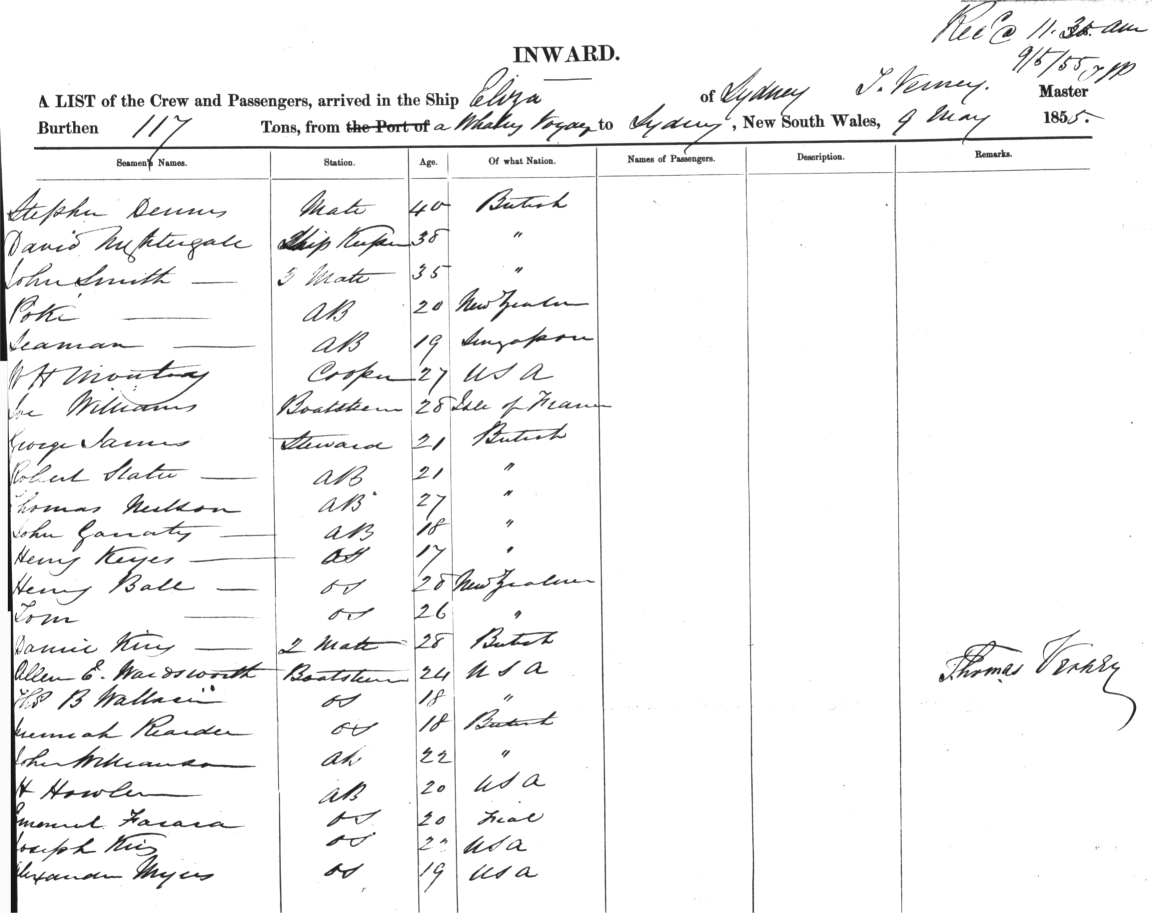 Rec@ 11.30 am
9/5/55
INWARD.
A LIST of the Crew and Passengers, arrived in the Ship Eliza of Sydney T. Verney. Master
Burthen 117 Tons, from the Port of a Whaling Voyage to Sydney, New South Wales, 9 May 1855.
Seamen's Names. Station. Age. Of what Nation. Names of Passengers. Description. Remarks.
Stephen Dennis Mate 40 British
David Nightergale Ship Keeper 38 "
John Smith — 3 Mate 35 "
Poki — AB 20 New Zealander
Seaman — AB 19 Singapore
W H Cooper 27 USA
Joe Williams Boatsteer 28 Isle of France
George James Steward 21 British
Robert Slater — AB 21 "
Thomas Neilson AB 27 "
John Garraty — AB 18 "
Henry Keyes — OS 17 "
Henry Ball — OS 28 New Zealander
Tom — OS 26 "
Daniel King — 2 Mate 28 British
Allen E. Wardsworth Boatsteer 24 USA
Thos B Wallace OS 18 "
Jeremiah Rearden OS 18 British
John Williamson ab 22 "
H Howler AB 20 USA
Emanuel OS 20
Joseph King OS USA
Alexander Myers OS 19 USA
Thomas Verney